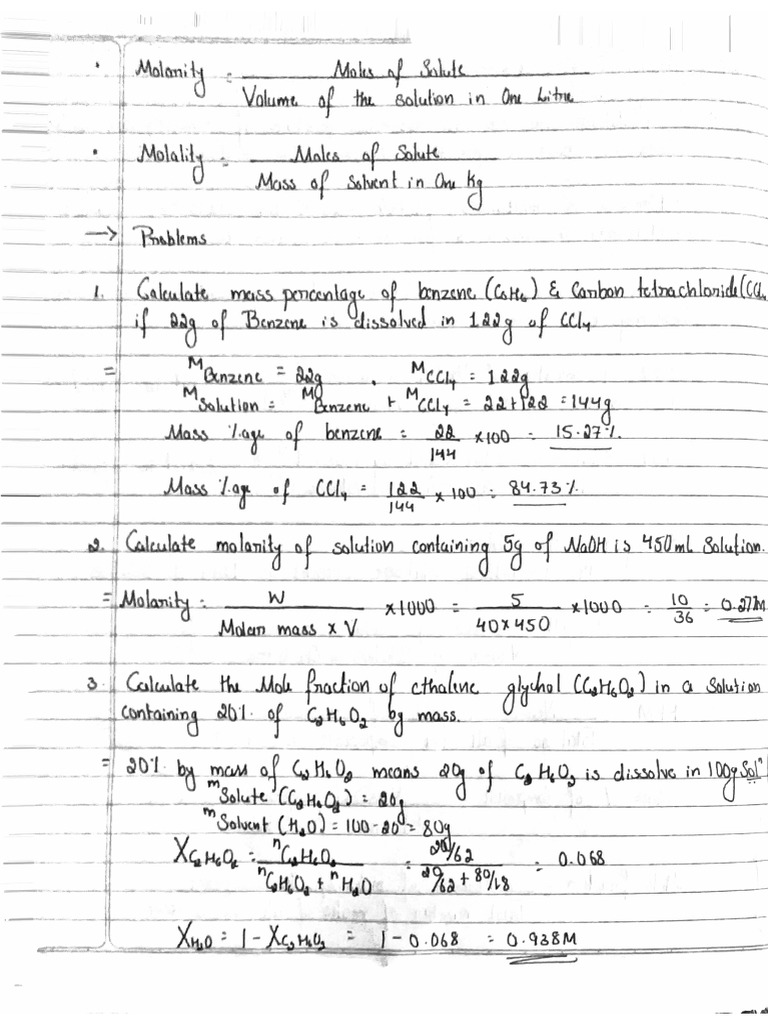 • Molarity = Moles of Solute
Volume of the solution in One Litre
• Molality = Moles of Solute
Mass of Solvent in One Kg
→ Problems
1. Calculate mass percentage of benzene (C6H6) & Carbon tetrachloride (CCl4
if 22g of Benzene is dissolved in 122g of CCl4
= MBenzene = 22g . MCCl4 = 122g
MSolution = MBenzene + MCCl4 = 22+122 = 144g
Mass %age of benzene = 22/144 ×100 = 15.27%.
Mass %age of CCl4 = 122/144 × 100 = 84.73%.
2. Calculate molarity of solution containing 5g of NaOH is 450ml Solution.
= Molarity = W / Molar mass × V ×1000 = 5 / 40×450 ×1000 = 10/36 = 0.27M
3. Calculate the Mole fraction of ethalene glychol (C2H6O2) in a Solution
containing 20% of C2H6O2 by mass.
= 20% by mass of C2H6O2 means 20g of C2H6O2 is dissolve in 100g Solⁿ
mSolute (C2H6O2) = 20g
mSolvent (H2O) = 100-20 = 80g
XC2H6O2 = nC2H6O2 / nC2H6O2 + nH2O = 20/62 / 20/62 + 80/18 = 0.068
XH2O = 1 - XC2H6O2 = 1 - 0.068 = 0.938M